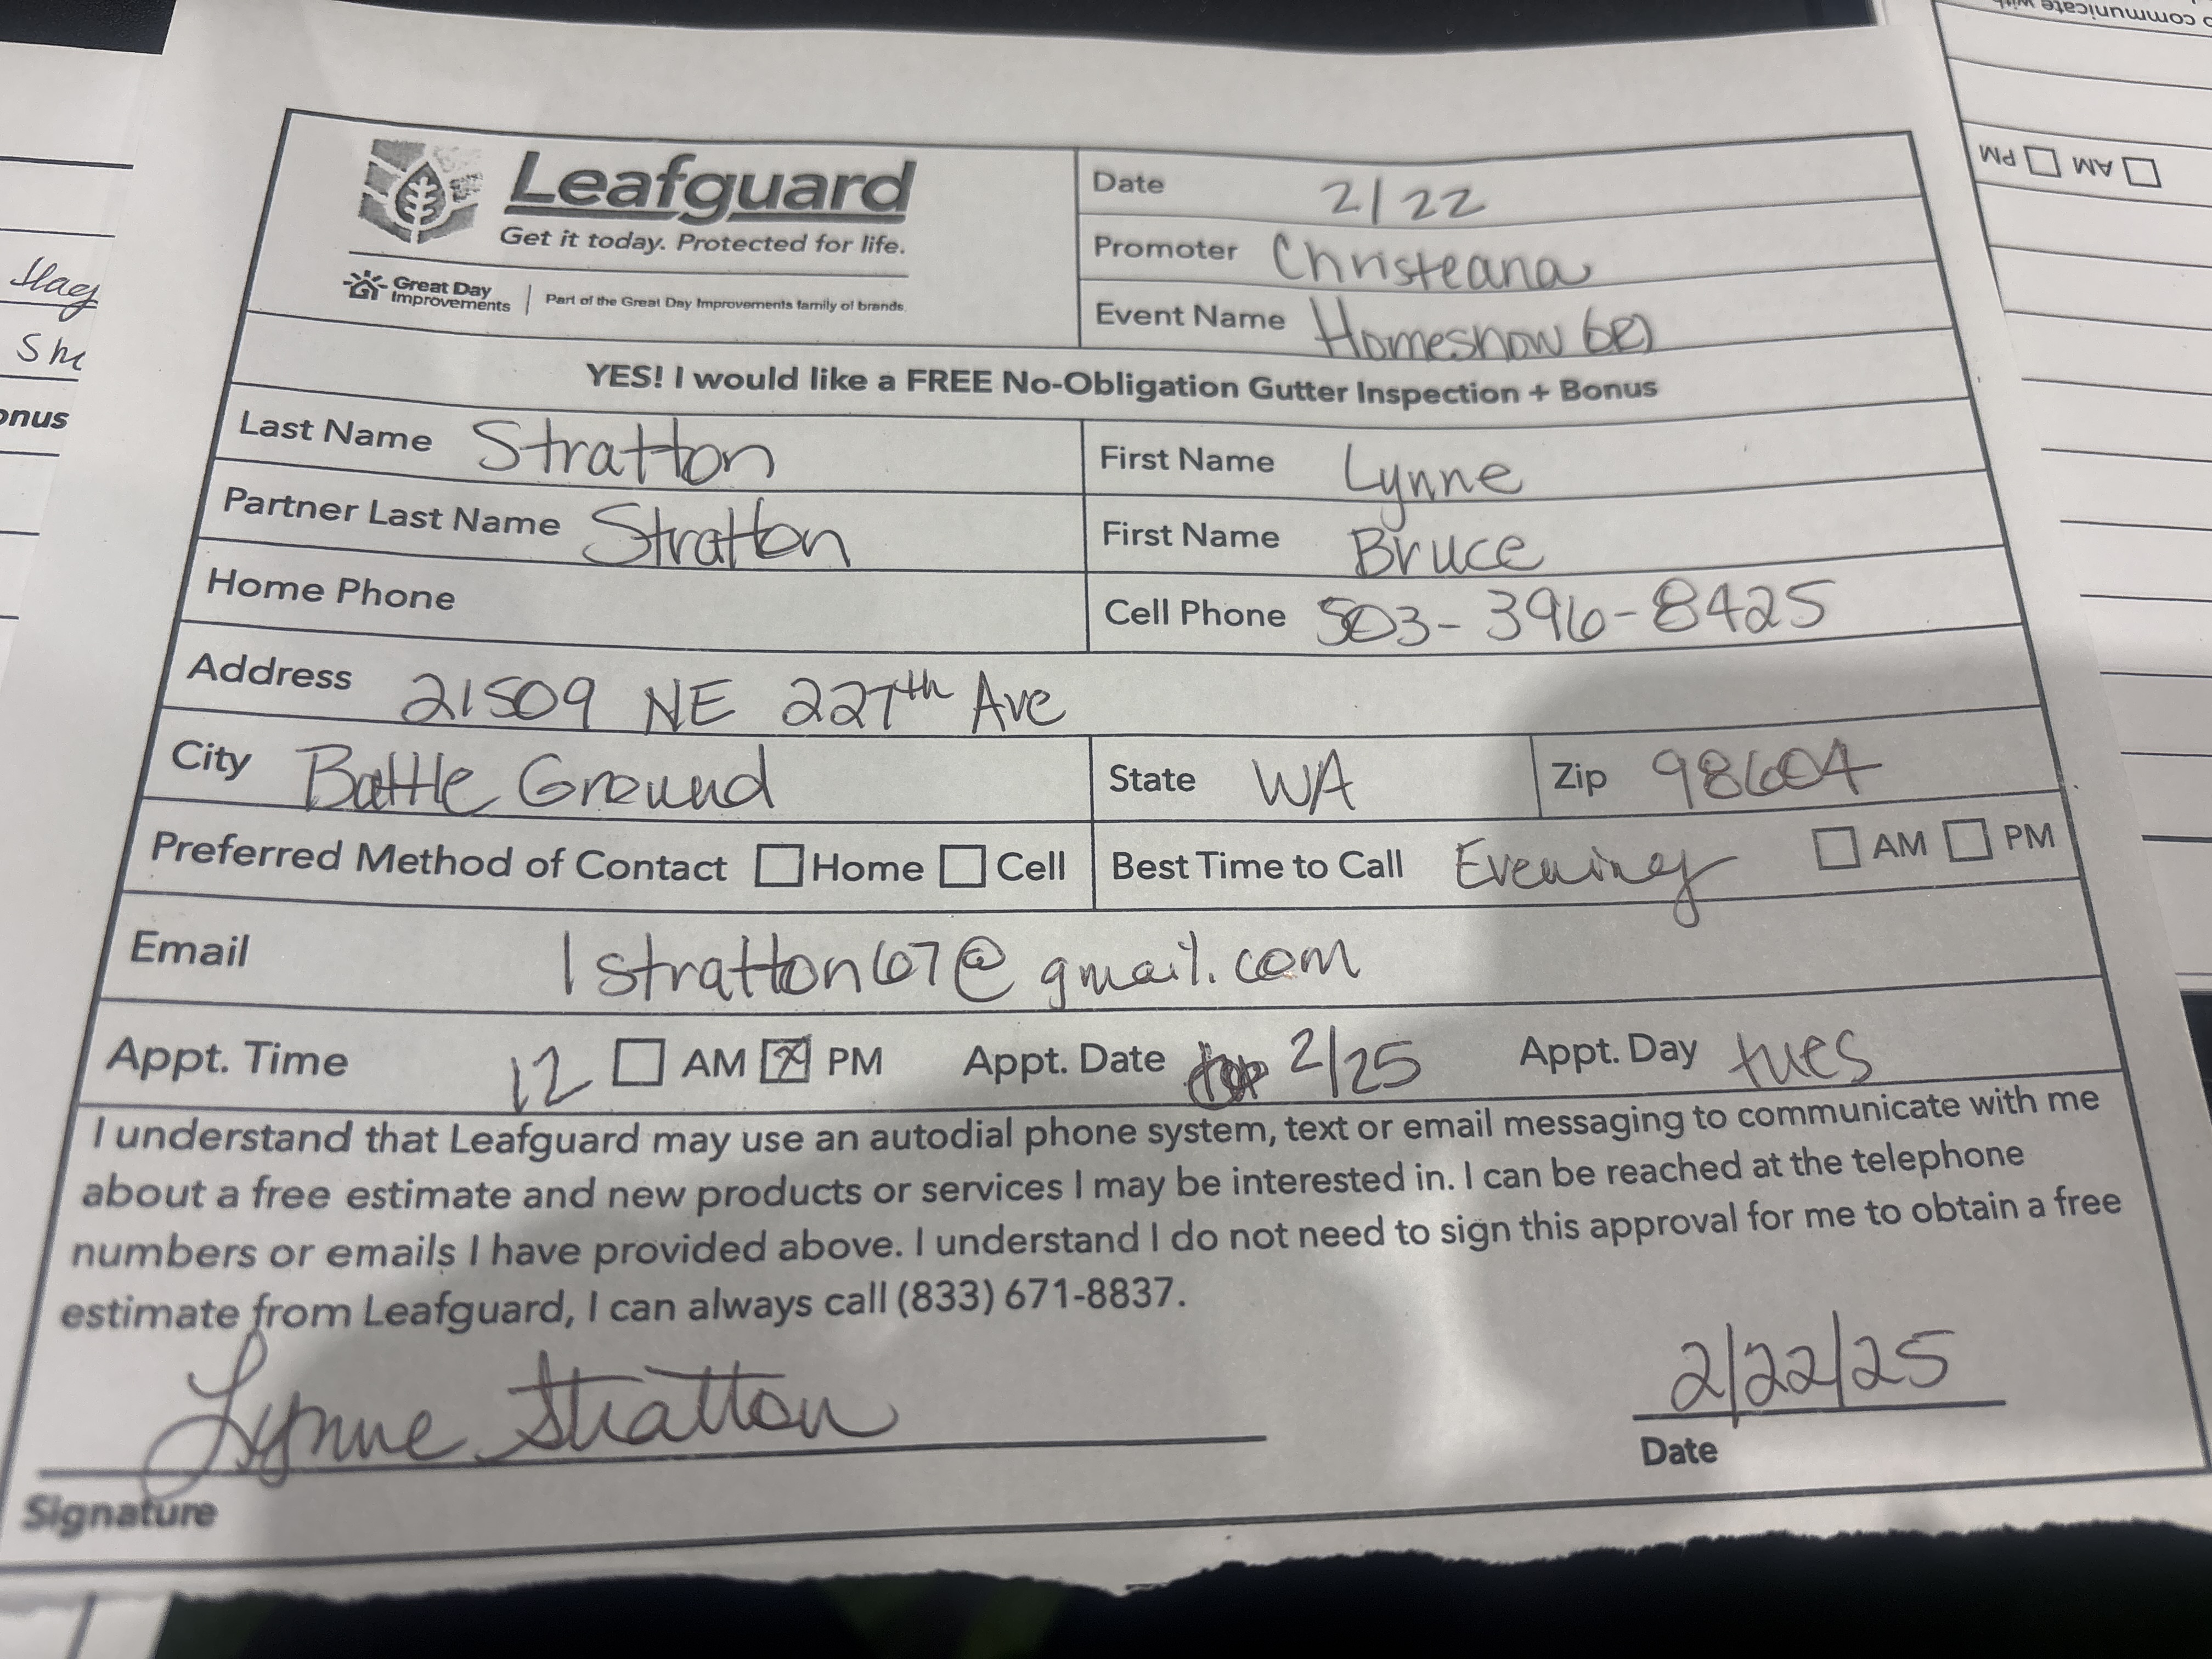 Leafguard
Get it today. Protected for life.
Great Day Improvements | Part of the Great Day Improvements family of brands.
Date 2/22
Promoter Christeana
Event Name Homeshow
YES! I would like a FREE No-Obligation Gutter Inspection + Bonus
Last Name Stratton First Name Lynne
Partner Last Name Stratton First Name Bruce
Home Phone Cell Phone 503-396-8425
Address 21509 NE 227th Ave
City Battle Ground State WA Zip 98604
Preferred Method of Contact Home Cell Best Time to Call Evening AM PM
Email lstratton67@gmail.com
Appt. Time 12 AM PM Appt. Date 2/25 Appt. Day tues
I understand that Leafguard may use an autodial phone system, text or email messaging to communicate with me
about a free estimate and new products or services I may be interested in. I can be reached at the telephone
numbers or emails I have provided above. I understand I do not need to sign this approval for me to obtain a free
estimate from Leafguard, I can always call (833) 671-8837.
Lynne Stratton 2/22/25
Signature Date
onus
PM AM